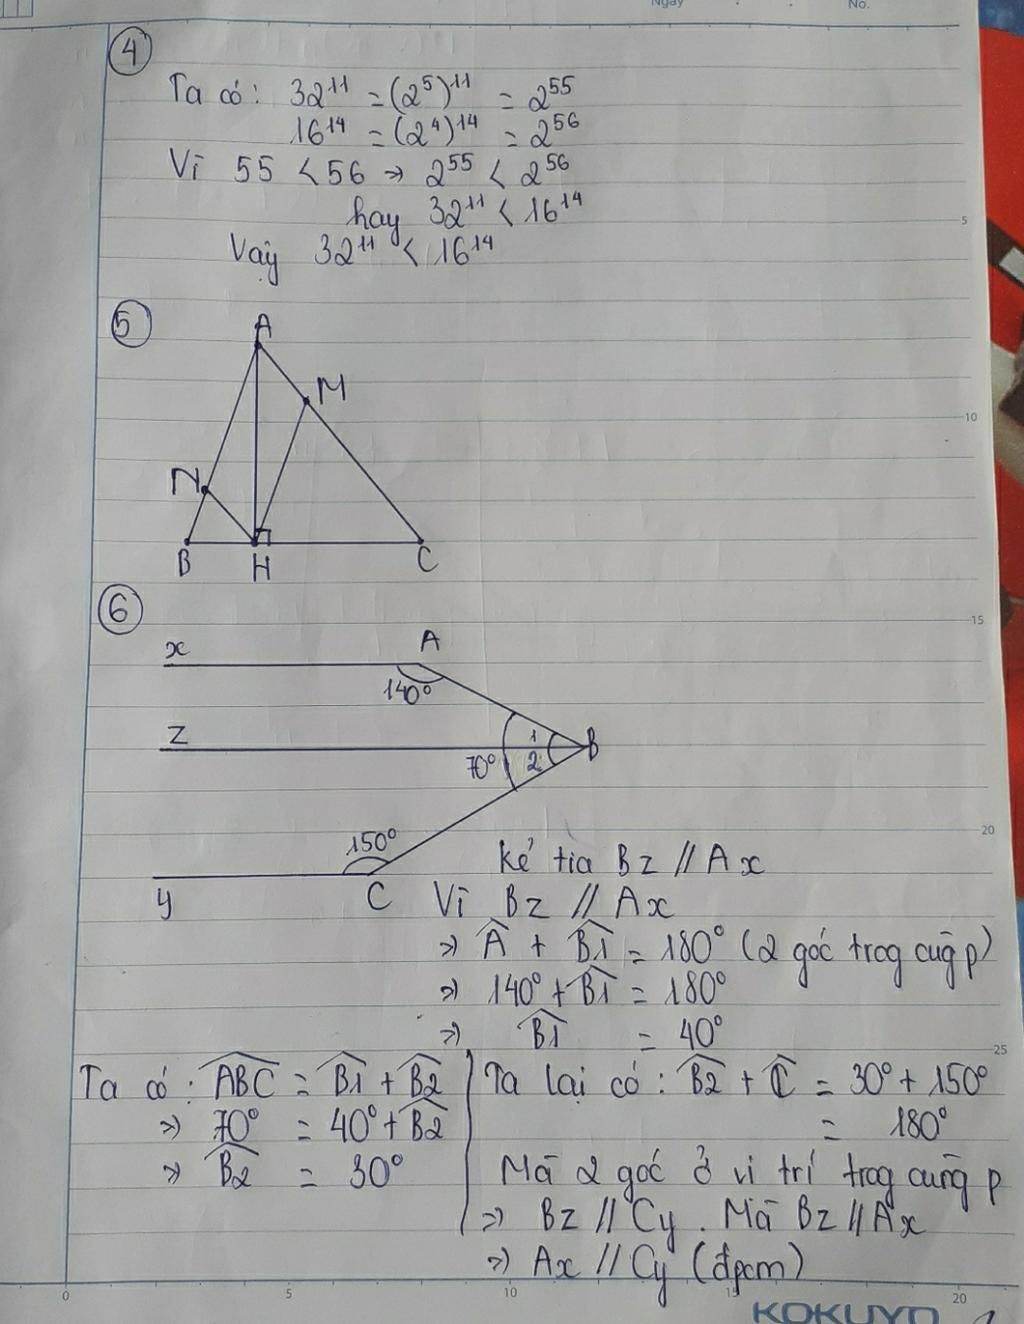 Ngày
No.
4
Ta có: 32¹¹ = (2⁵)¹¹ = 2⁵⁵
16¹⁴ = (2⁴)¹⁴ = 2⁵⁶
Vì 55 < 56 => 2⁵⁵ < 2⁵⁶
hay 32¹¹ < 16¹⁴
Vậy 32¹¹ < 16¹⁴
5
A
M
N
B H C
6
x A
140°
z 1 B
70° 2
150°
y C
Kẻ tia Bz // Ax
Vì Bz // Ax
=> Â + B̂1 = 180° (2 góc trog cùg p)
=> 140° + B̂1 = 180°
=> B̂1 = 40°
Ta có: ÂBC = B̂1 + B̂2
=> 70° = 40° + B̂2
=> B̂2 = 30°
Ta lại có: B̂2 + Ĉ = 30° + 150°
= 180°
Mà 2 góc ở vị trí trog cùng p
=> Bz // Cy. Mà Bz // Ax
=> Ax // Cy (đpcm)
5
10
15
20
25
0 5 10 15 20
KOKUYO